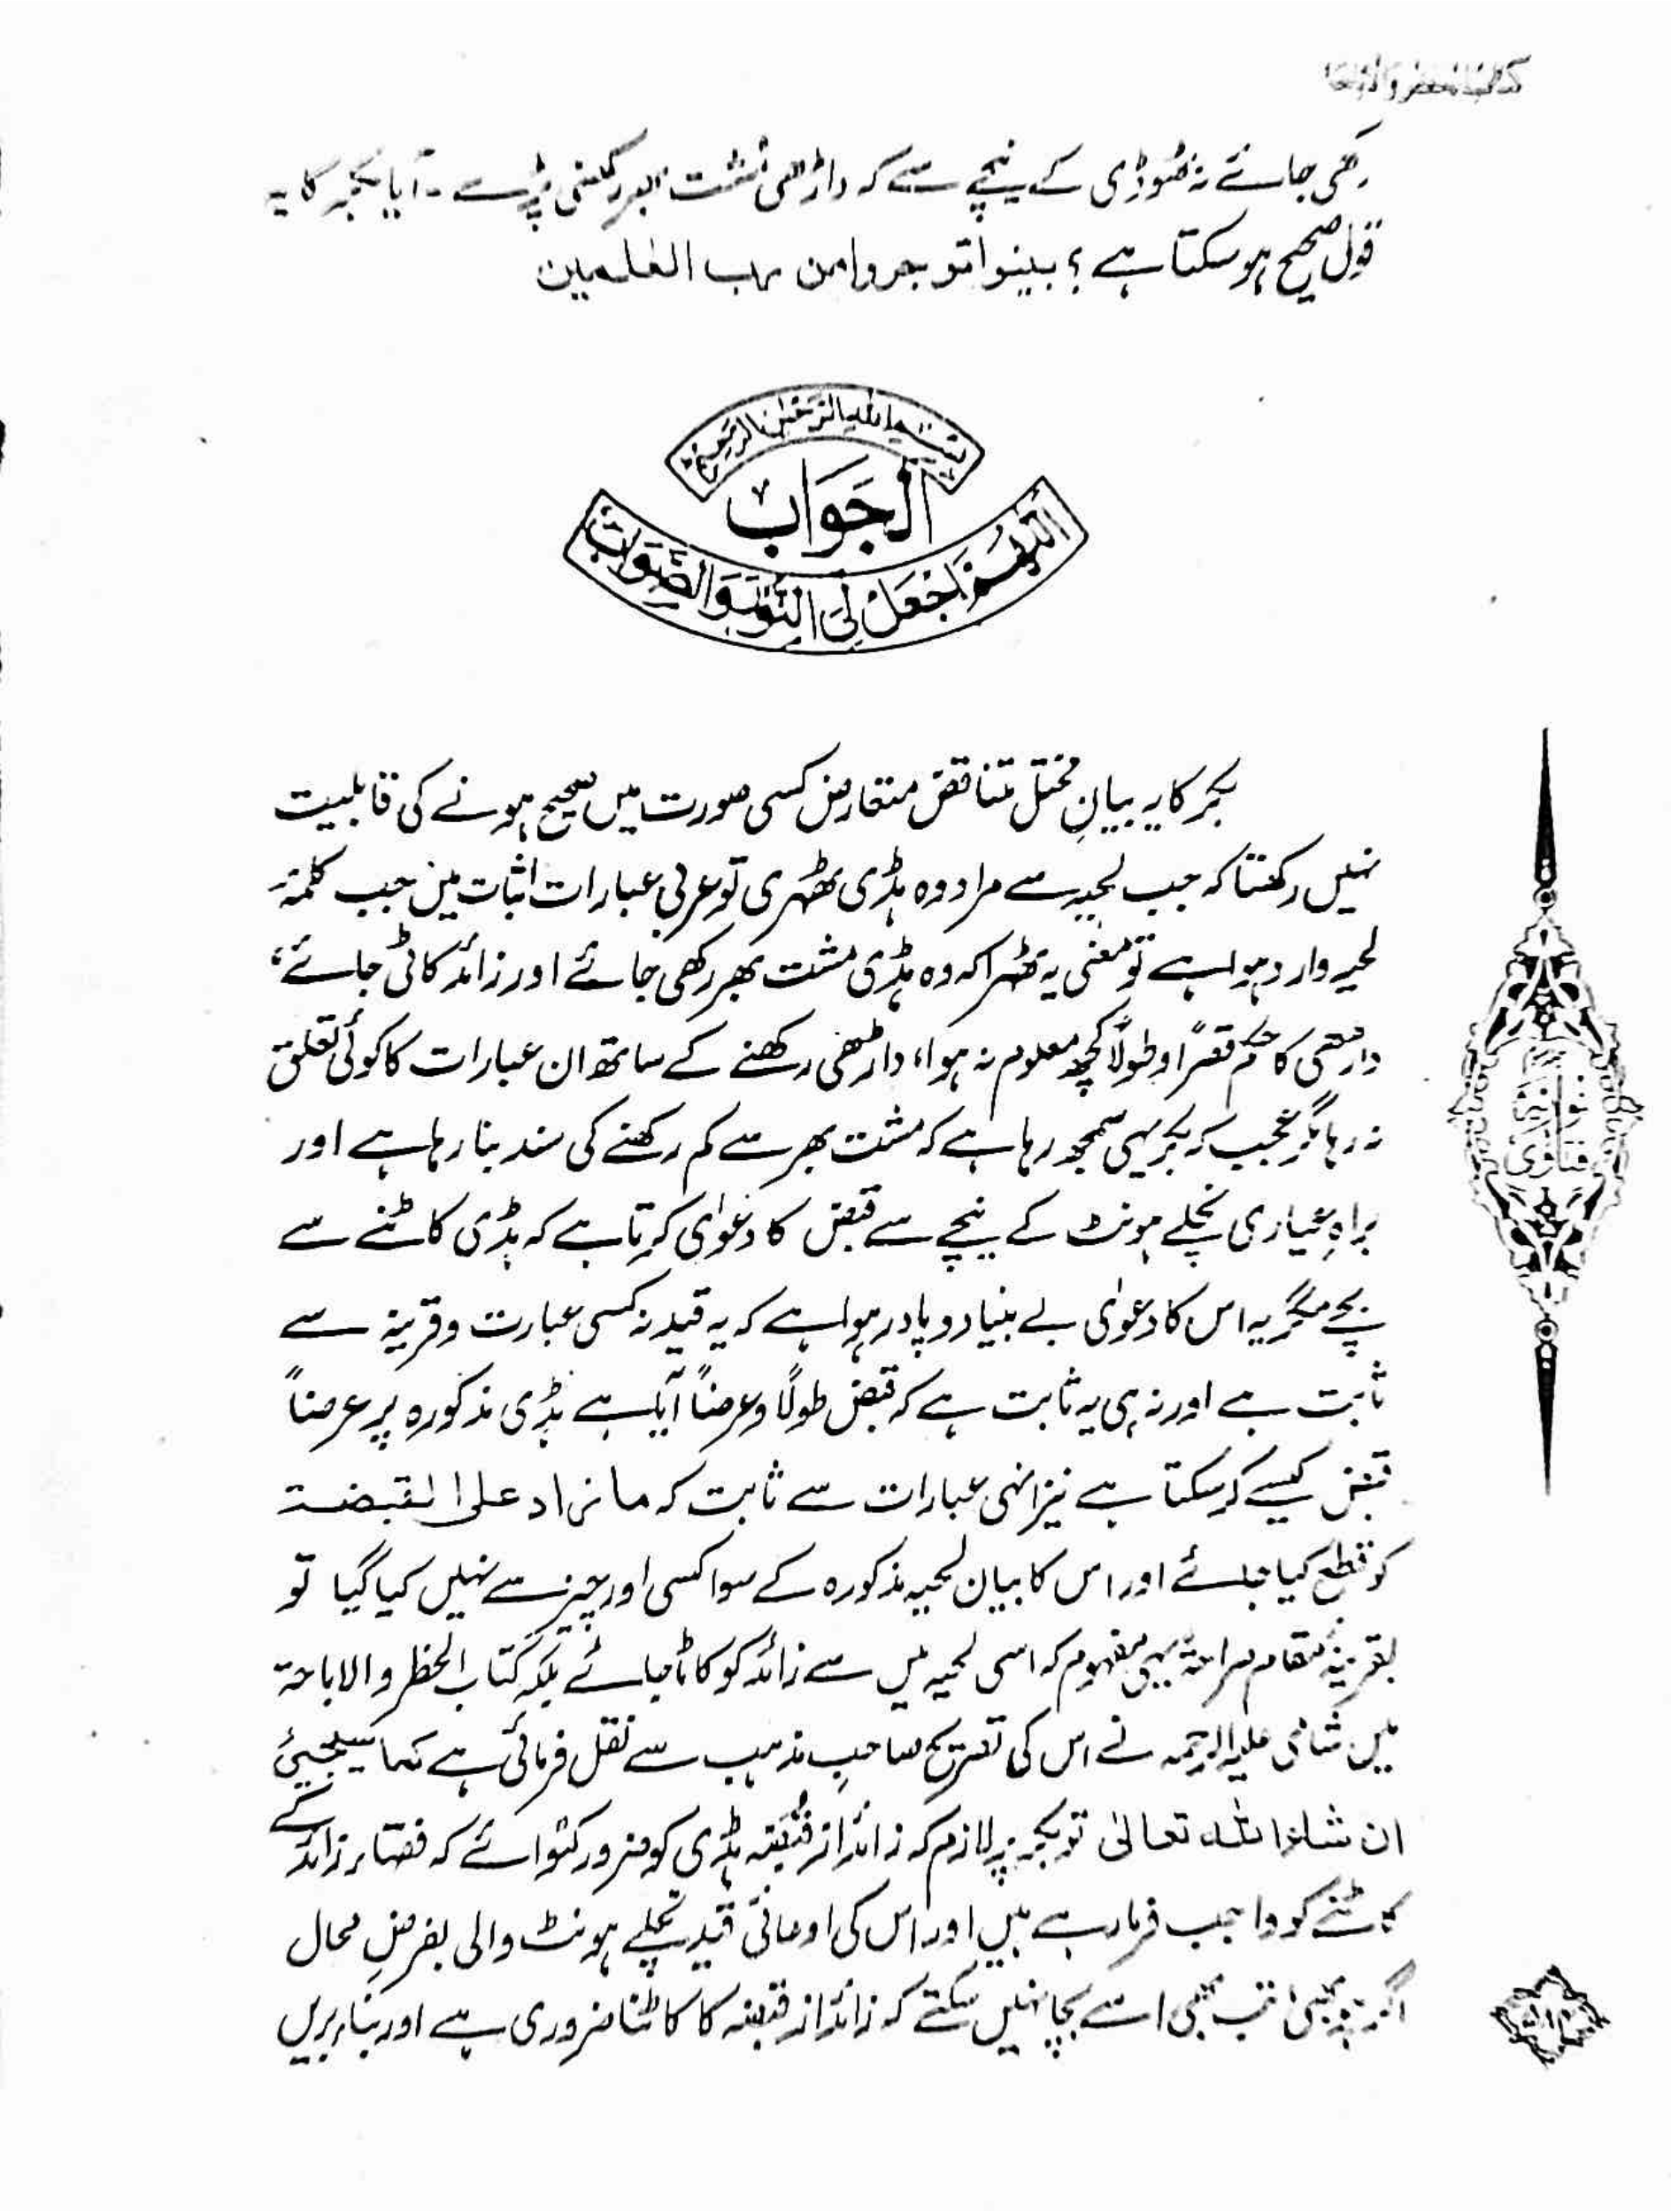 کتاب الحظر والاباحۃ
رکھی جائے نہ ٹھوڈی کے نیچے سے کہ داڑھی مشت بھر رکھنی پڑے ۔ آیا بکر کا یہ
قول صحیح ہو سکتا ہے ؟ بینوا توجروا من رب العٰلمین
بسم اللہ الرحمٰن الرحیم
الجواب
اللھم اجعل لی النور والصواب
بکر کا یہ بیانِ مختل متناقض متعارض کسی صورت میں صحیح ہونے کی قابلیت
نہیں رکھتا کہ جب لحیہ سے مراد وہ ہڈی ٹھہری تو عربی عبارات اثبات میں جب کلمۂ
لحیہ وارد ہوا ہے تو معنی یہ ٹھہرا کہ وہ ہڈی مشت بھر رکھی جائے اور زائد کاٹی جائے،
داڑھی کا حکم قصرًا و طولًا کچھ معلوم نہ ہوا، داڑھی رکھنے کے ساتھ ان عبارات کا کوئی تعلق
نہ رہا مگر عجب کہ بکر یہی سمجھ رہا ہے کہ مشت بھر سے کم رکھنے کی سند بنا رہا ہے اور
براہِ عیاری نچلے ہونٹ کے نیچے سے قبض کا دعوٰی کرتا ہے کہ ہڈی کاٹنے سے
بچے مگر یہ اس کا دعوٰی بے بنیاد و پادر ہوا ہے کہ یہ قید نہ کسی عبارت و قرینہ سے
ثابت ہے اور نہ ہی یہ ثابت ہے کہ قبض طولًا و عرضاً آیا ہے ہڈی مذکورہ پر عرضاً
قبض کیسے کر سکتا ہے نیز انہی عبارات سے ثابت کہ ما زاد علی القبضۃ
کو قطع کیا جائے اور اس کا بیان لحیہ مذکورہ کے سوا کسی اور چیز سے نہیں کیا گیا تو
بقرینۂ مقام صراحۃً یہی مفہوم کہ اسی لحیہ میں سے زائد کو کاٹا جائے بلکہ کتاب الحظر والاباحۃ
میں شامی علیہ الرحمہ نے اس کی تصریح صاحبِ مذہب سے نقل فرمائی ہے کما سیجیئ
ان شاء اللہ تعالیٰ تو بکر پر لازم کہ زائد از قبضہ ہڈی کو ضرور کٹوائے کہ فقہاء زائد کے
کاٹنے کو واجب فرما رہے ہیں اور اس کی ادعائی قید نچلے ہونٹ والی بفرضِ محال
اگر ہو بھی تب بھی اسے بچا نہیں سکتے کہ زائد از قبضہ کا کاٹنا ضروری ہے اور بناء بریں
فتاوٰی
نوریہ